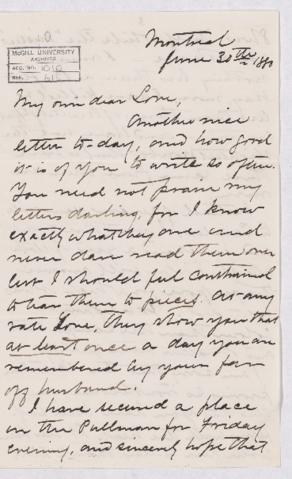 McGILL UNIVERSITY
ARCHIVES
ACC. NO. 1010
REF.
Montreal
June 30th 1880
My own dear Love,
Another nice
letter to-day, and how good
it is of you to write so often.
You need not praise my
letters darling, for I know
exactly what they are and
never dare read them over
lest I should feel constrained
to tear them to pieces. At any
rate Love, they show you that
at least once a day you are
remembered by your far
off husband.
I have secured a place
on the Pullman for Friday
evening, and sincerely hope that